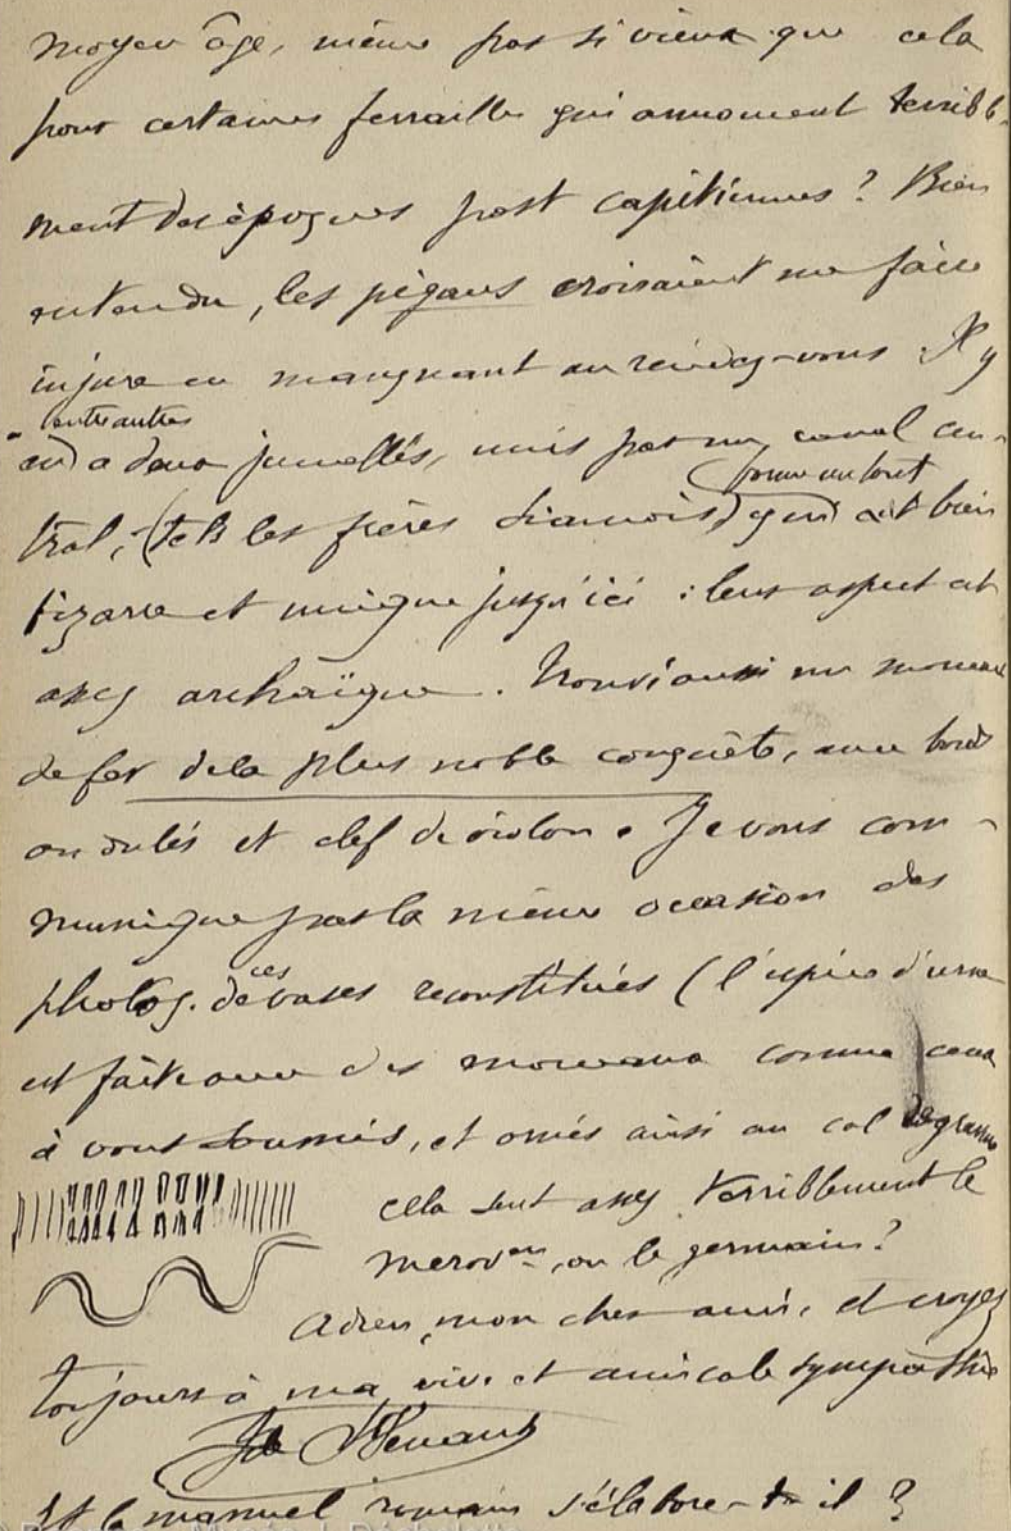 moyen âge, même pas si vieux que cela
pour certaines ferrailles qui annoncent terrible-
ment des époques post capétiennes ? Bien
entendu, les pégaus croiraient me faire
injure en manquant au rendez-vous. Il y
entre autres
en a deux jumellés, mais par un canal cen-
forme un tout
tral, (tels les frères siamois) qui est bien
bizarre et unique jusqu'ici : leur aspect est
assez archaïque. Trouvé aussi un morceau
de fer de la plus noble conquête, avec bords
ondulés et clef de violon. Je vous com-
munique par la même occasion des
ces
photog. de vases reconstitués (l'espèce d'urne
est faite avec des morceaux comme ceux
à vous soumis, et ornés ainsi au col
cela sent assez terriblement le
merov.en, ou le germain ?
Adieu, mon cher ami, et croyez
toujours à ma vive et amicale sympathie
Et le manuel romain s'élabore-t-il ?